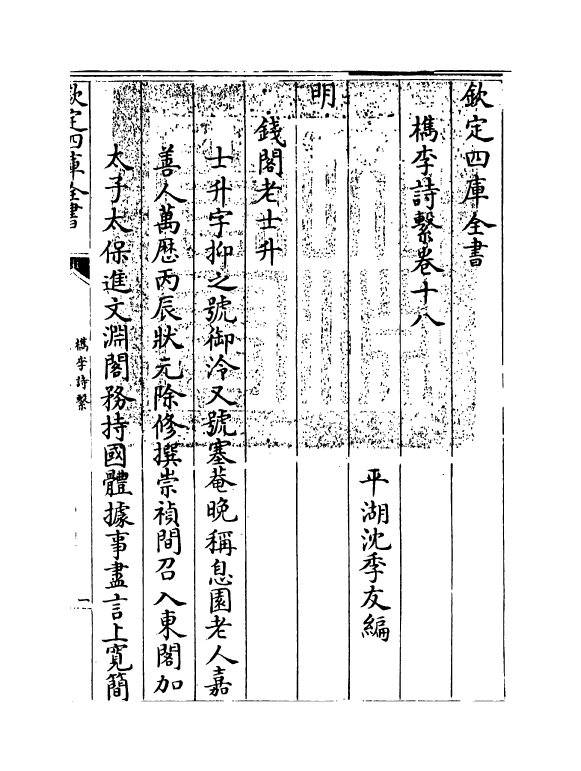 欽定四庫全書
檇李詩繫卷十八
平湖沈季友編
明
錢閣老士升
士升字抑之號御泠又號塞菴晚稱息園老人嘉
善人萬歷丙辰狀元除修撰崇禎間召入東閣加
太子太保進文淵閣務持國體據事盡言上寬簡
欽定四庫全書
檇李詩繫
一